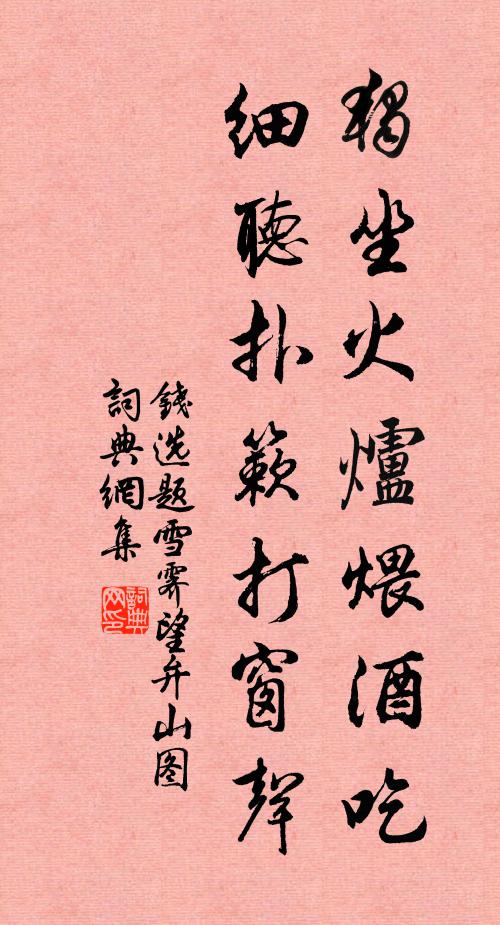 獨坐火爐煨酒吃
細聽扑簌打窗聲
錢选题雪霁望弁山图
詞典網集
詞典
网印